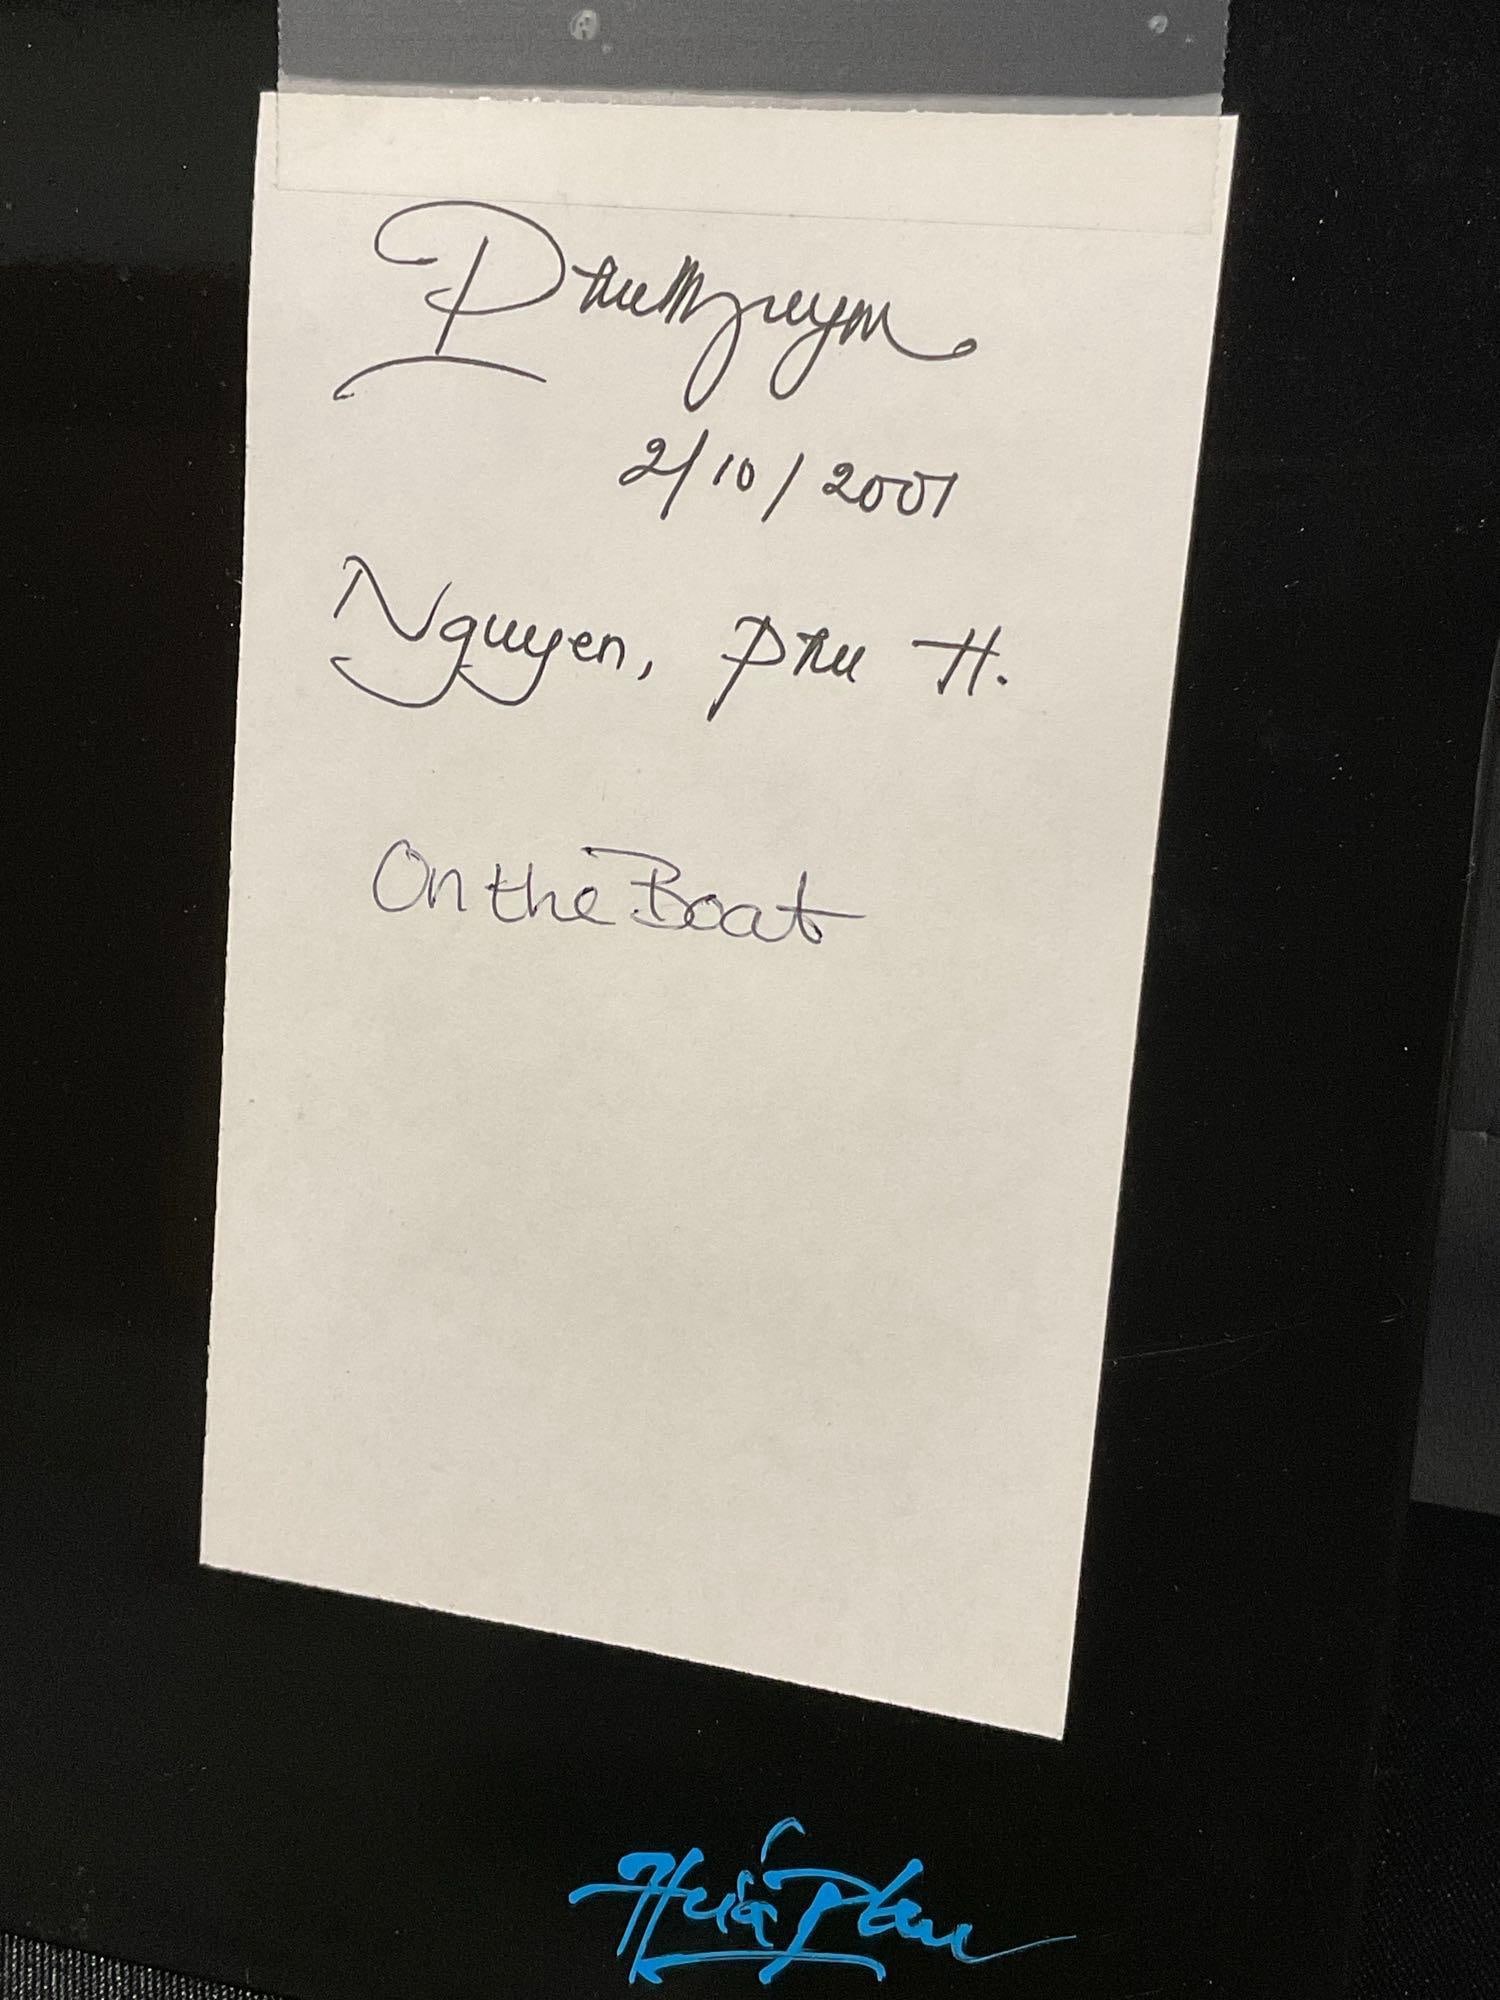 Phu Nguyen
2/10/2001
Nguyen, Phu H.
On the Boat
Phu